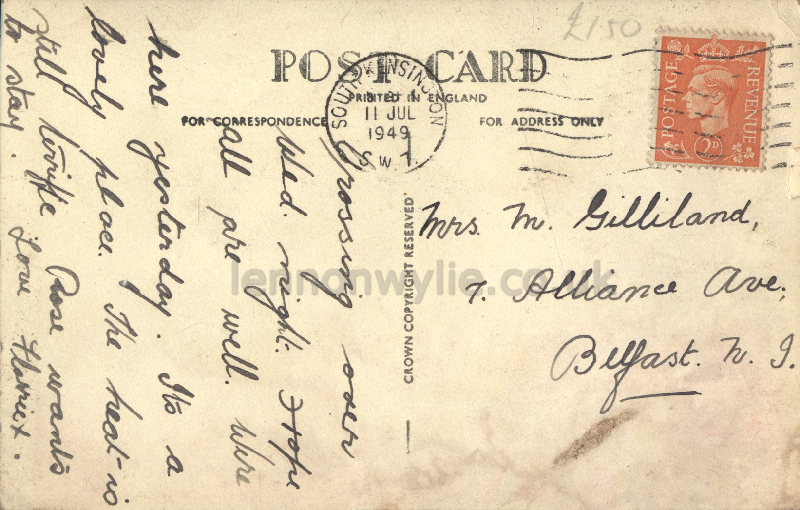 £1.50
POST CARD
PRINTED IN ENGLAND
FOR CORRESPONDENCE
FOR ADDRESS ONLY
SOUTH KENSINGTON
11 JUL
1949
S.W.7
POSTAGE
REVENUE
2D
CROWN COPYRIGHT RESERVED
Crossing over
Wed. night. Hope
all are well. Were
here yesterday. Its a
lovely place. The heat is
still terrific Rose wants
to stay. Love Harriet.
Mrs. M. Gilliland,
7. Alliance Ave.,
Belfast. N. I.
lennonwylie.co.uk